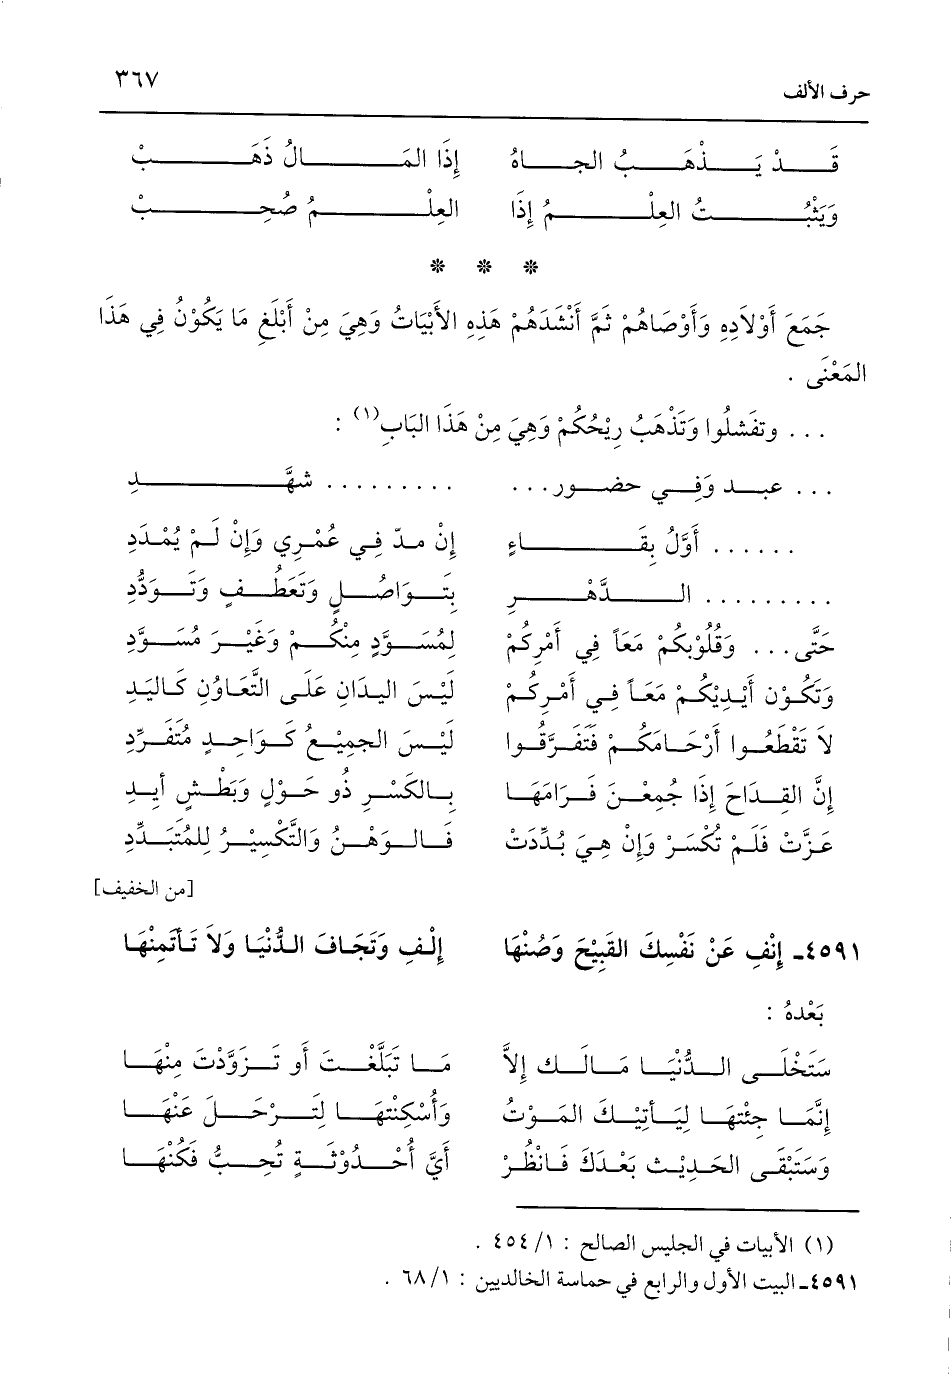 حرف الألف ٣٦٧
قَدْ يَذْهَبُ الجاهُ إِذَا المَالُ ذَهَبْ
وَيَثْبُتُ العِلْمُ إِذَا العِلْمُ صُحِبْ
* * *
جَمَعَ أَوْلَادِهِ وَأَوْصَاهُمْ ثمَّ أَنْشَدَهُمْ هَذِهِ الأَبْيَاتُ وَهِيَ مِنْ أَبْلَغِ مَا يَكُوْنُ فِي هَذَا
المَعْنَى .
... وتفَشلُوا وَتَذْهَبُ رِيْحُكُمْ وَهِيَ مِنْ هَذَا البَابِ(١) :
... عبد وَفِي حضور... ......... شهَّدِ
...... أوَّلُ بِقَاءٍ إِنْ مدّ فِي عُمْرِي وَإِنْ لَمْ يُمْدَدِ
......... الدَّهْرِ بِتَوَاصُلٍ وَتَعَطُّفٍ وَتَوَدُّدِ
حَتَّى... وَقُلُوْبكُمْ مَعَاً فِي أَمْرِكُمْ لمُسَوَّدٍ مِنْكُمْ وَغَيْرِ مُسَوَّدِ
وَتكُوْن أَيْدِيْكُمْ مَعَاً فِي أَمْرِكُمْ لَيْسَ اليدَانِ عَلَى التَّعَاوُنِ كَاليَدِ
لَا تَقْطَعُوا أَرْحَامَكُمْ فَتَفَرَّقُوا لَيْسَ الجمِيْعُ كَوَاحِدٍ مُتَفَرِّدِ
إِنَّ القِدَاحَ إِذَا جُمِعْنَ فَرَامَهَا بِالكَسْرِ ذُو حَوْلٍ وَبَطْشٍ أيدِ
عَزَّتْ فَلَمْ تُكْسَرْ وَإِنْ هِيَ بُدِّدَتْ فَالوَهْنُ وَالتَّكْسِيْرُ لِلمُتَبَدِّدِ
[من الخفيف]
٤٥٩١ـ إِنْفِ عَنْ نَفْسِكَ القَبِيْحَ وَصُنْهَا إِلْفِ وَتَجَافَ الدُّنْيَا وَلَا تَأتَمِنْهَا
بَعْدهُ :
سَتَخْلَى الدُّنْيَا مَالَك إِلَّا مَا تَبَلَّغْتَ أَو تَزَوَّدْتَ مِنْهَا
إِنَّمَا جِئْتهَا لِيَأتِيْكَ المَوْتُ وَأُسْكِنْتهَا لِتَرْحَلَ عَنْهَا
وَسَتَبْقَى الحَدِيْث بَعْدَكَ فَانْظُرْ أَيَّ أُحْدُوْثَةٍ تُحِبُّ فَكُنْهَا
(١) الأبيات في الجليس الصالح : ١/ ٤٥٤ .
٤٥٩١ـ البيت الأول والرابع في حماسة الخالديين : ١/ ٦٨ .